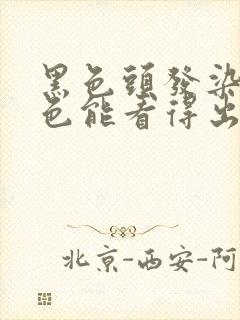 黑色頭發染
色能看得出
北京-西安-阿